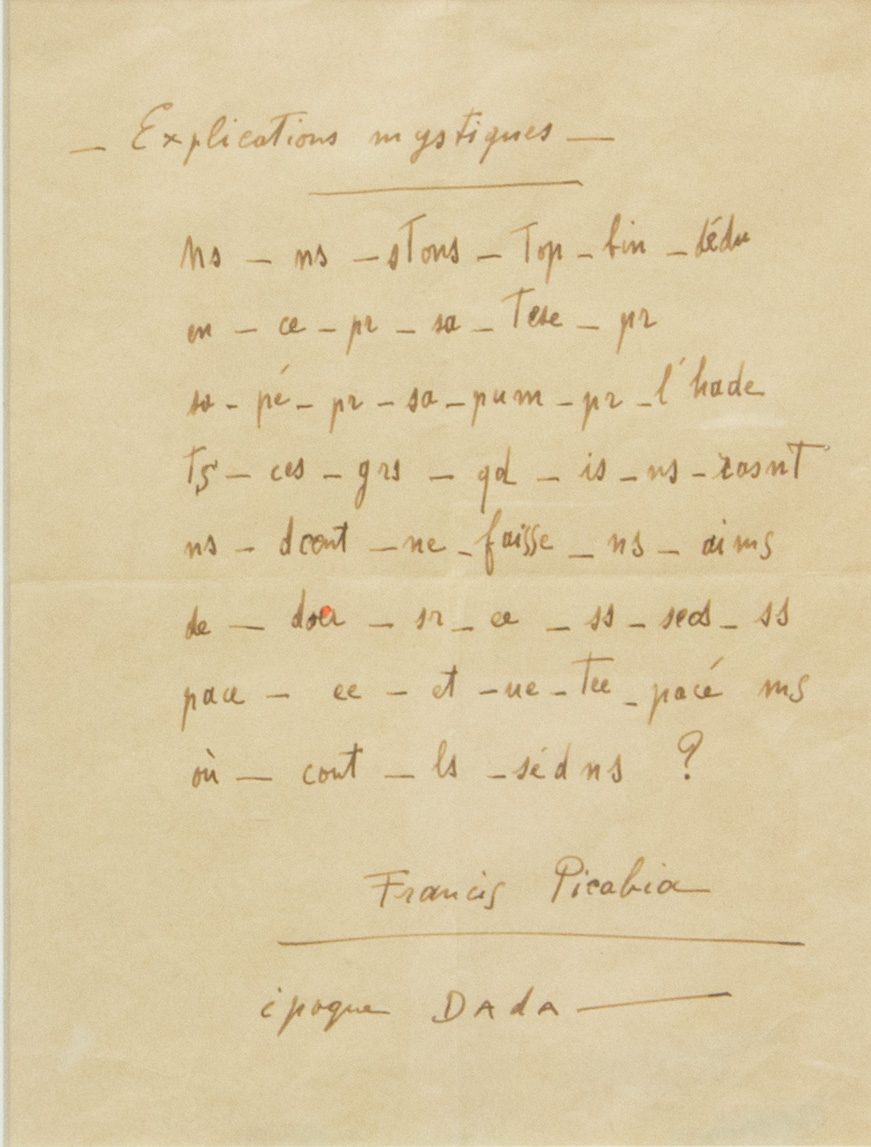 — Explications mystiques —
Ns — ns — stons — Top — bin — dédu
en — ce — pr — sa — Tese — pr
sa — pé — pr — sa — pum — pr — l'hade
Ts — ces — grs — qd — is — ns — rasnT
ns — dcont — ne — faisse — ns — aims
de — — sr — ce — ss — seds — ss
pace — ce — et — ne — Tee — pacé ms
où — cont — ls — sédns ?
Francis Picabia
époque DAdA —